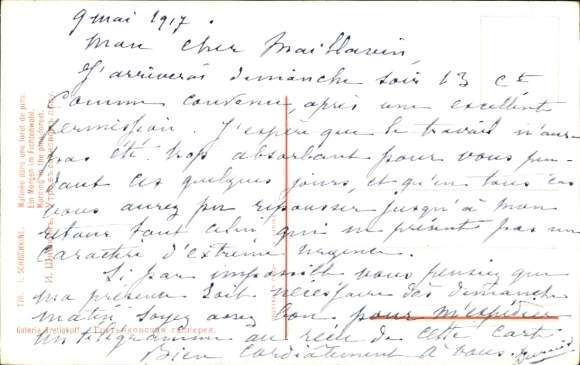 9 mai 1917.
Mon cher Maillavin
J'arriverai dimanche soir 13 ct
comme convenu, après une excellente
permission. J'espère que le travail n'aura
pas été trop absorbant pour vous pen-
dant ces quelques jours, et qu'en tous cas
vous aurez pu repousser jusqu'à mon
retour tout celui qui ne présente pas un
caractère d'extrême urgence.
Si par impossible vous pensiez que
ma présence soit nécessaire dès dimanche
matin, soyez assez bon pour m'expédier
un télégramme au reçu de cette carte
Bien cordialement à vous.
176. I. SCHISCHKINE.
Matinée dans une foret de pins.
Ein Morgen im Fichtenwald.
Morning in the pine-forest.
И. Шишкинъ. Утро въ сосновомъ лѣсу.
Galerie Tretiakoff. Третьяковская галлерея.